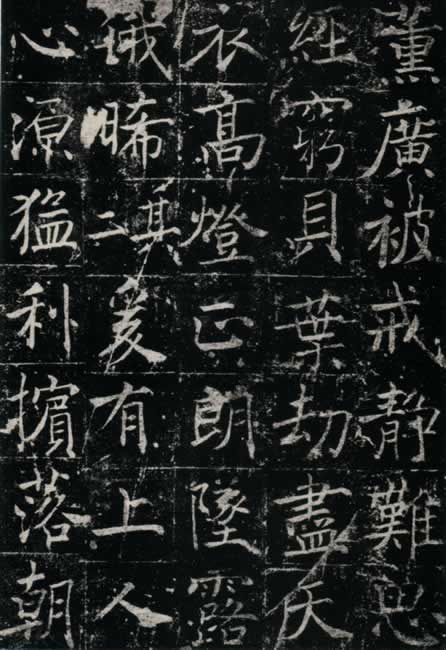 薰廣被戒靜難
經窮貝葉劫盡天
衣高燈正朗墜露
俄晞其二爰有上人
心源猛利擯落朝